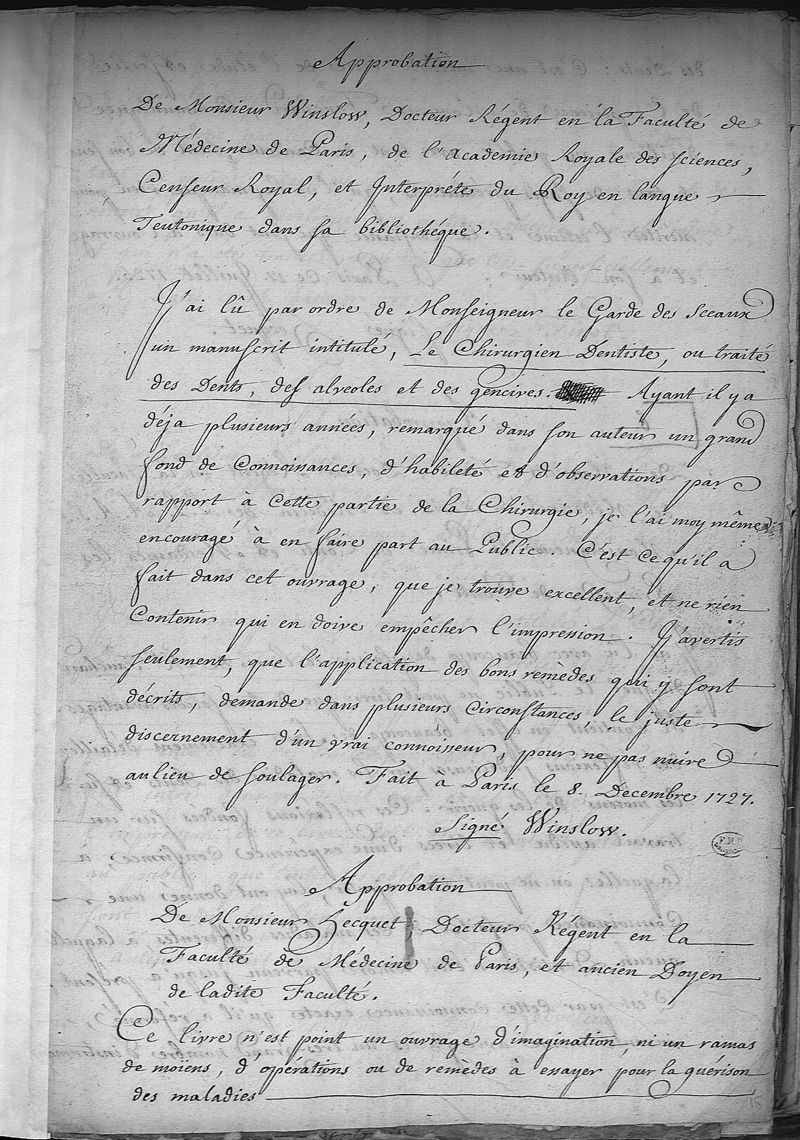 Approbation
De Monsieur Winslow, Docteur Régent en la Faculté de
Médecine de Paris, de l'Academie Royale des sciences,
Censeur Royal, et Interpréte du Roy en langue
Teutonique dans sa bibliothéque.
J'ai lû par ordre de Monseigneur le Garde des Sceaux
un manuscrit intitulé, Le Chirurgien Dentiste, ou traité
des Dents, des alveoles et des gencives. Ayant il y a
déja plusieurs années, remarqué dans son auteur un grand
fond de connoissances, d'habileté et d'observations par
rapport à cette partie de la Chirurgie, je l'ai moy même
encouragé à en faire part au Public. C'est ce qu'il a
fait dans cet ouvrage, que je trouve excellent, et ne rien
contenir qui en doive empêcher l'impression. J'avertis
seulement, que l'application des bons remèdes qui y sont
décrits, demande dans plusieurs circonstances, le juste
discernement d'un vrai connoisseur, pour ne pas nuire
au lieu de soulager. Fait à Paris le 8. Decembre 1727.
Signé Winslow.
Approbation
De Monsieur Hecquet Docteur Régent en la
Faculté de Médecine de Paris, et ancien Doyen
de ladite Faculté.
Ce livre n'est point un ouvrage d'imagination, ni un ramas
de moïens, d'opérations ou de remèdes à essayer pour la guérison
des maladies